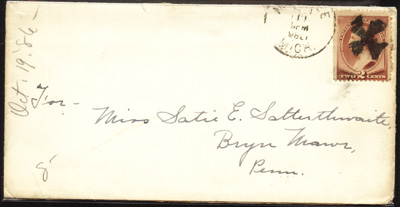 Oct. 19, '86 -
MICH.
TWO 2 CENTS
For -
Miss Satie E. Satterthwaite,
Bryn Mawr,
Penn.